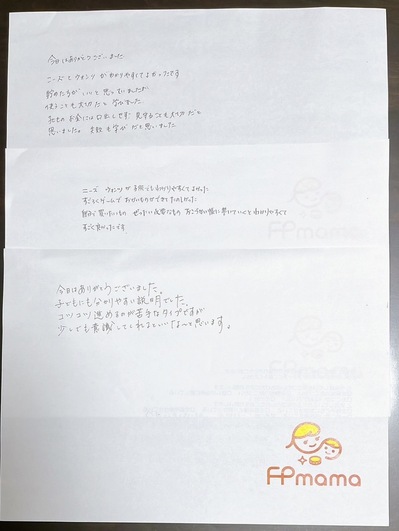 今日はありがとうございました
ニーズとウォンツがわかりやすくてよかったです
貯めたちがいいと思っていましたが
使うことも大切だと
私もお金には口出しせず見守ることも大切だと
思いました。お姉も学んだと思いました
ニーズ ウォンツが わかりやすくてよかった
すごろくゲームで おかいものができてたのしかった
買いたいもの ぜったい必要なもの わかりやすくて
すごく良かったです
今日はありがとうございました。
子どもにも分かりやすい説明でした。
コツコツ進めるのが苦手なタイプですが
少しでも意識してくれるといいなぁと思います。
FPmama
FPmama